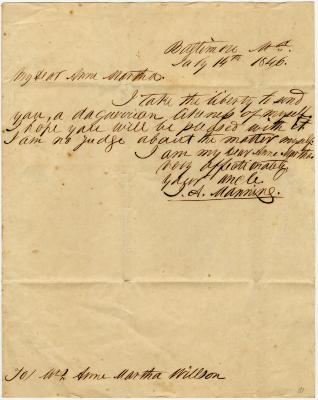 Baltimore Md.
July 14th 1846.
My dear Anne Martha.
I take the liberty to send
you, a daguerrian likeness of myself
I hope you will be pleased with it
I am no judge about the matter myself
I am my dear Anne Martha
very affectionately
your Uncle
A. Manning.
To/ Anne Martha Willson